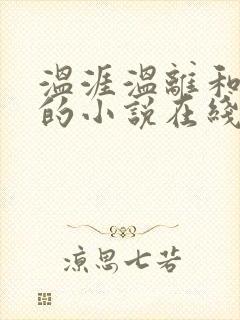 温涯温離和
的小说在綫
凉思七若